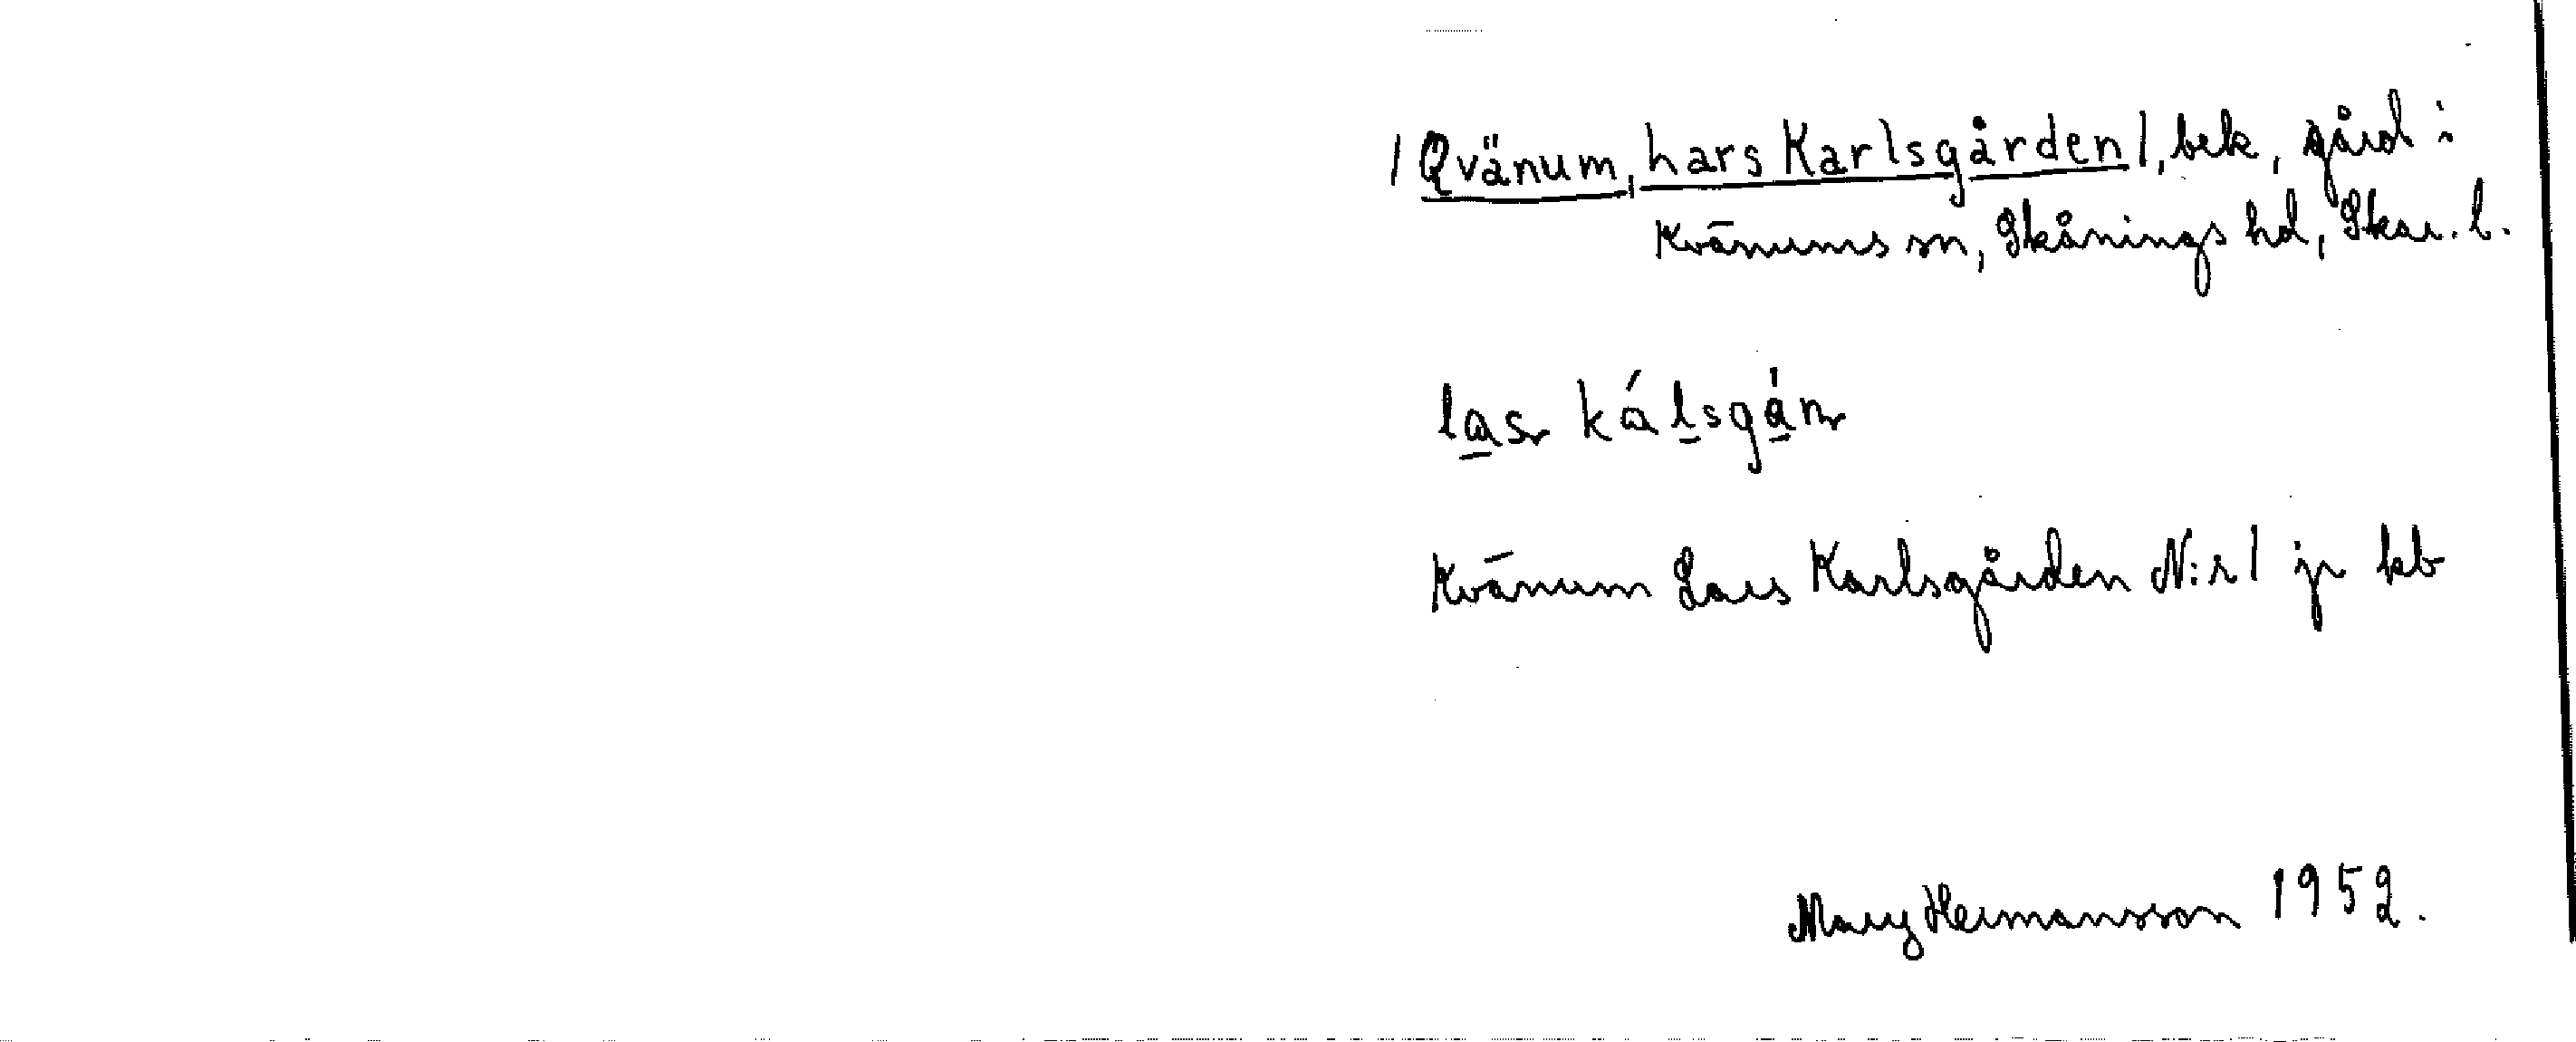 /Qvänum, Lars Karlsgården/, bek, gård i
Kvänums sn, Skånings hd, Skar. l.
Kvänum Lars Karlsgården N:r 1 jr kb
Mary Hermansson 1952.